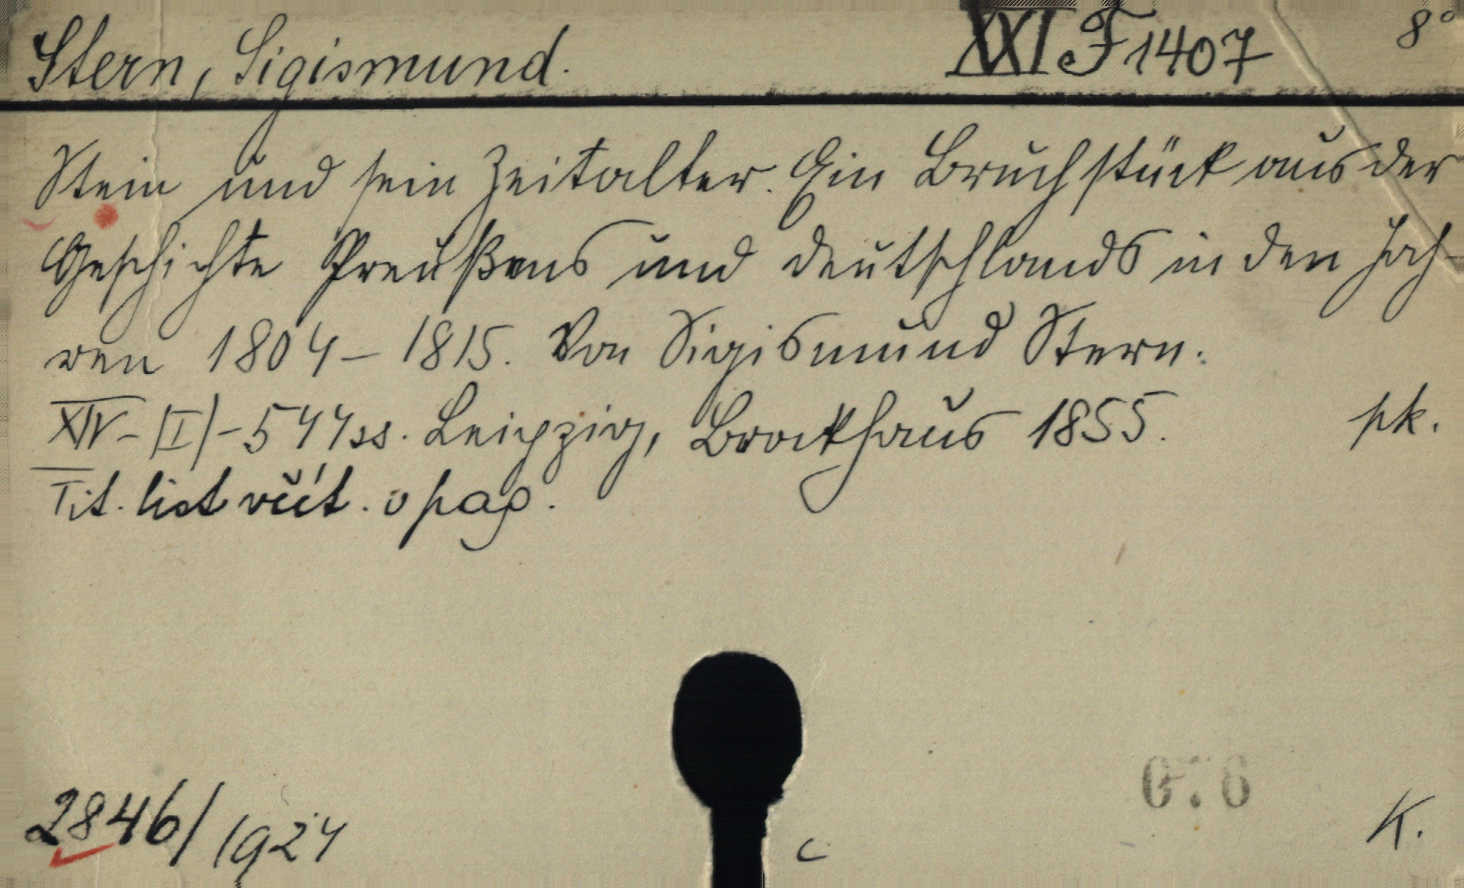 Stern, Sigismund. XXI F 1407 8°
Stein und sein Zeitalter. Ein Bruchstück aus der
Geschichte Preußens und Deutschlands in den Jah-
ren 1804-1815. Von Sigismund Stern.
XIV-[I]-544ss. Leipzig, Brockhaus 1855. pk.
Tit. list včít. o pag.
2846/1924 c K.